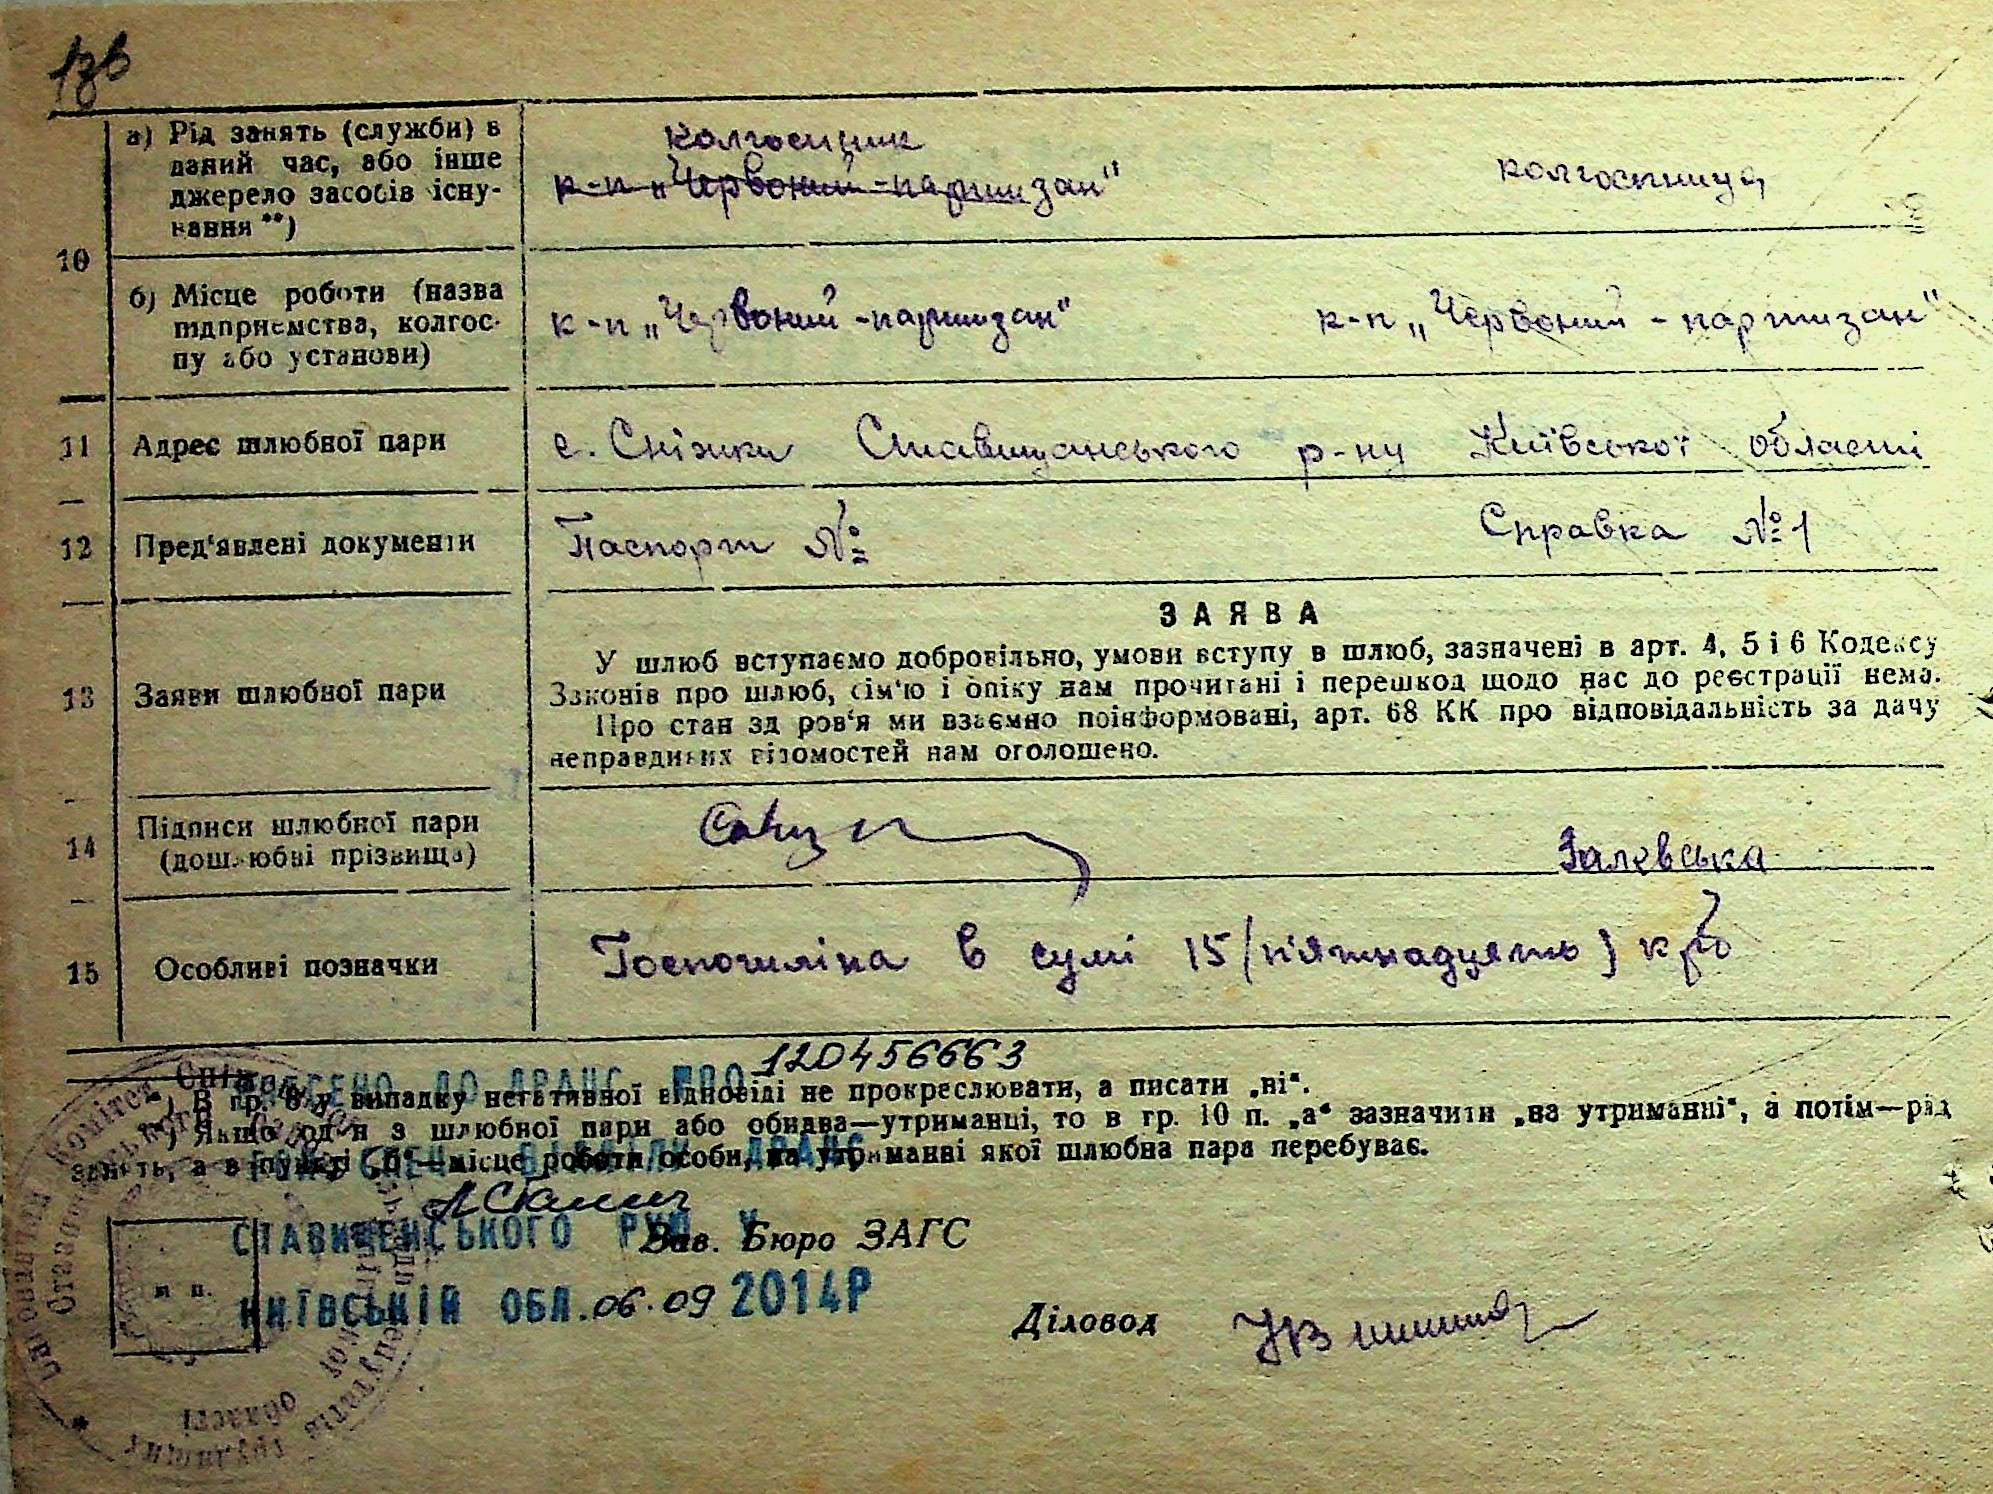 10
а) Рід занять (служби) в
даний час, або інше
джерело засобів існу-
вання **)
колгоспник
к-п „Червоний-партизан"
колгоспниця
б) Місце роботи (назва
підприємства, колгос-
пу або установи)
к-п „Червоний-партизан"
к-п „Червоний-партизан"
11
Адрес шлюбної пари
с. Сніжки Ставищанського р-ну Київської області
12
Пред'явлені документи
Паспорт №
Справка № 1
13
Заяви шлюбної пари
ЗАЯВА
У шлюб вступаємо добровільно, умови вступу в шлюб, зазначені в арт. 4, 5 і 6 Кодексу
Законів про шлюб, сім'ю і опіку нам прочитані і перешкод щодо нас до реєстрації нема.
Про стан здоров'я ми взаємно поінформовані, арт. 68 КК про відповідальність за дачу
неправдивих відомостей нам оголошено.
14
Підписи шлюбної пари
(дошлюбні прізвища)
Залевська
15
Особливі позначки
Госпошліна в сумі 15 (п'ятнадцять) крб
120456663
ДО ДРАЦС
*) В гр. 8 у випадку негативної відповіді не прокреслювати, а писати „ні".
**) Якщо один з шлюбної пари або обидва—утриманці, то в гр. 10 п. „а" зазначити „на утриманні", а потім—рід
занять, а в пункті „б"—місце роботи особи, на утриманні якої шлюбна пара перебуває.
СТАВИЩЕНСЬКОГО РУЮ У
Зав. Бюро ЗАГС
м п.
КИЇВСЬКІЙ ОБЛ. 06.09 2014Р
Діловод